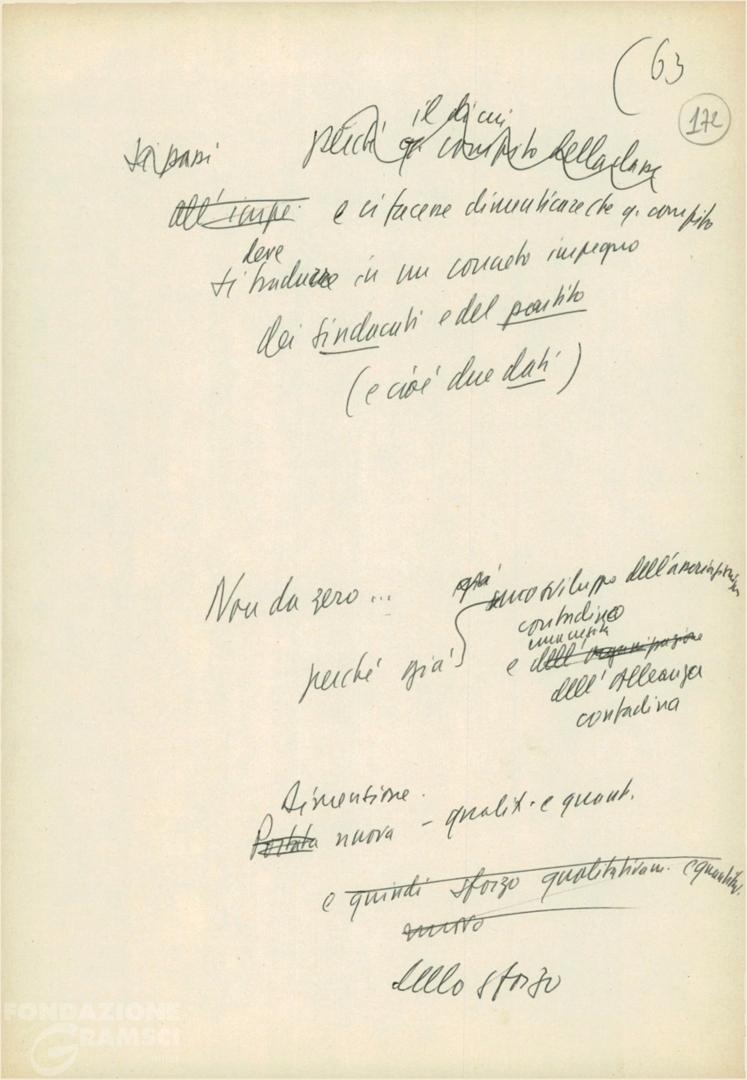 (63
172
perché il di cui
q. compito della classe
all'impe. e ci facesse dimenticare che q. compito
deve
si tradurre in un concreto impegno
dei sindacati e del partito
(e cioè due dati)
Non da zero...
già
uno sviluppo dell'associazionismo
contadino
una crescita
perché già
e dell'organizzazione
dell'Alleanza
contadina
Dimensione.
Portata nuova - qualit. e quant.
e quindi sforzo qualitativam. e quantitat.
nuovo
dello sforzo
FONDAZIONE
GRAMSCI